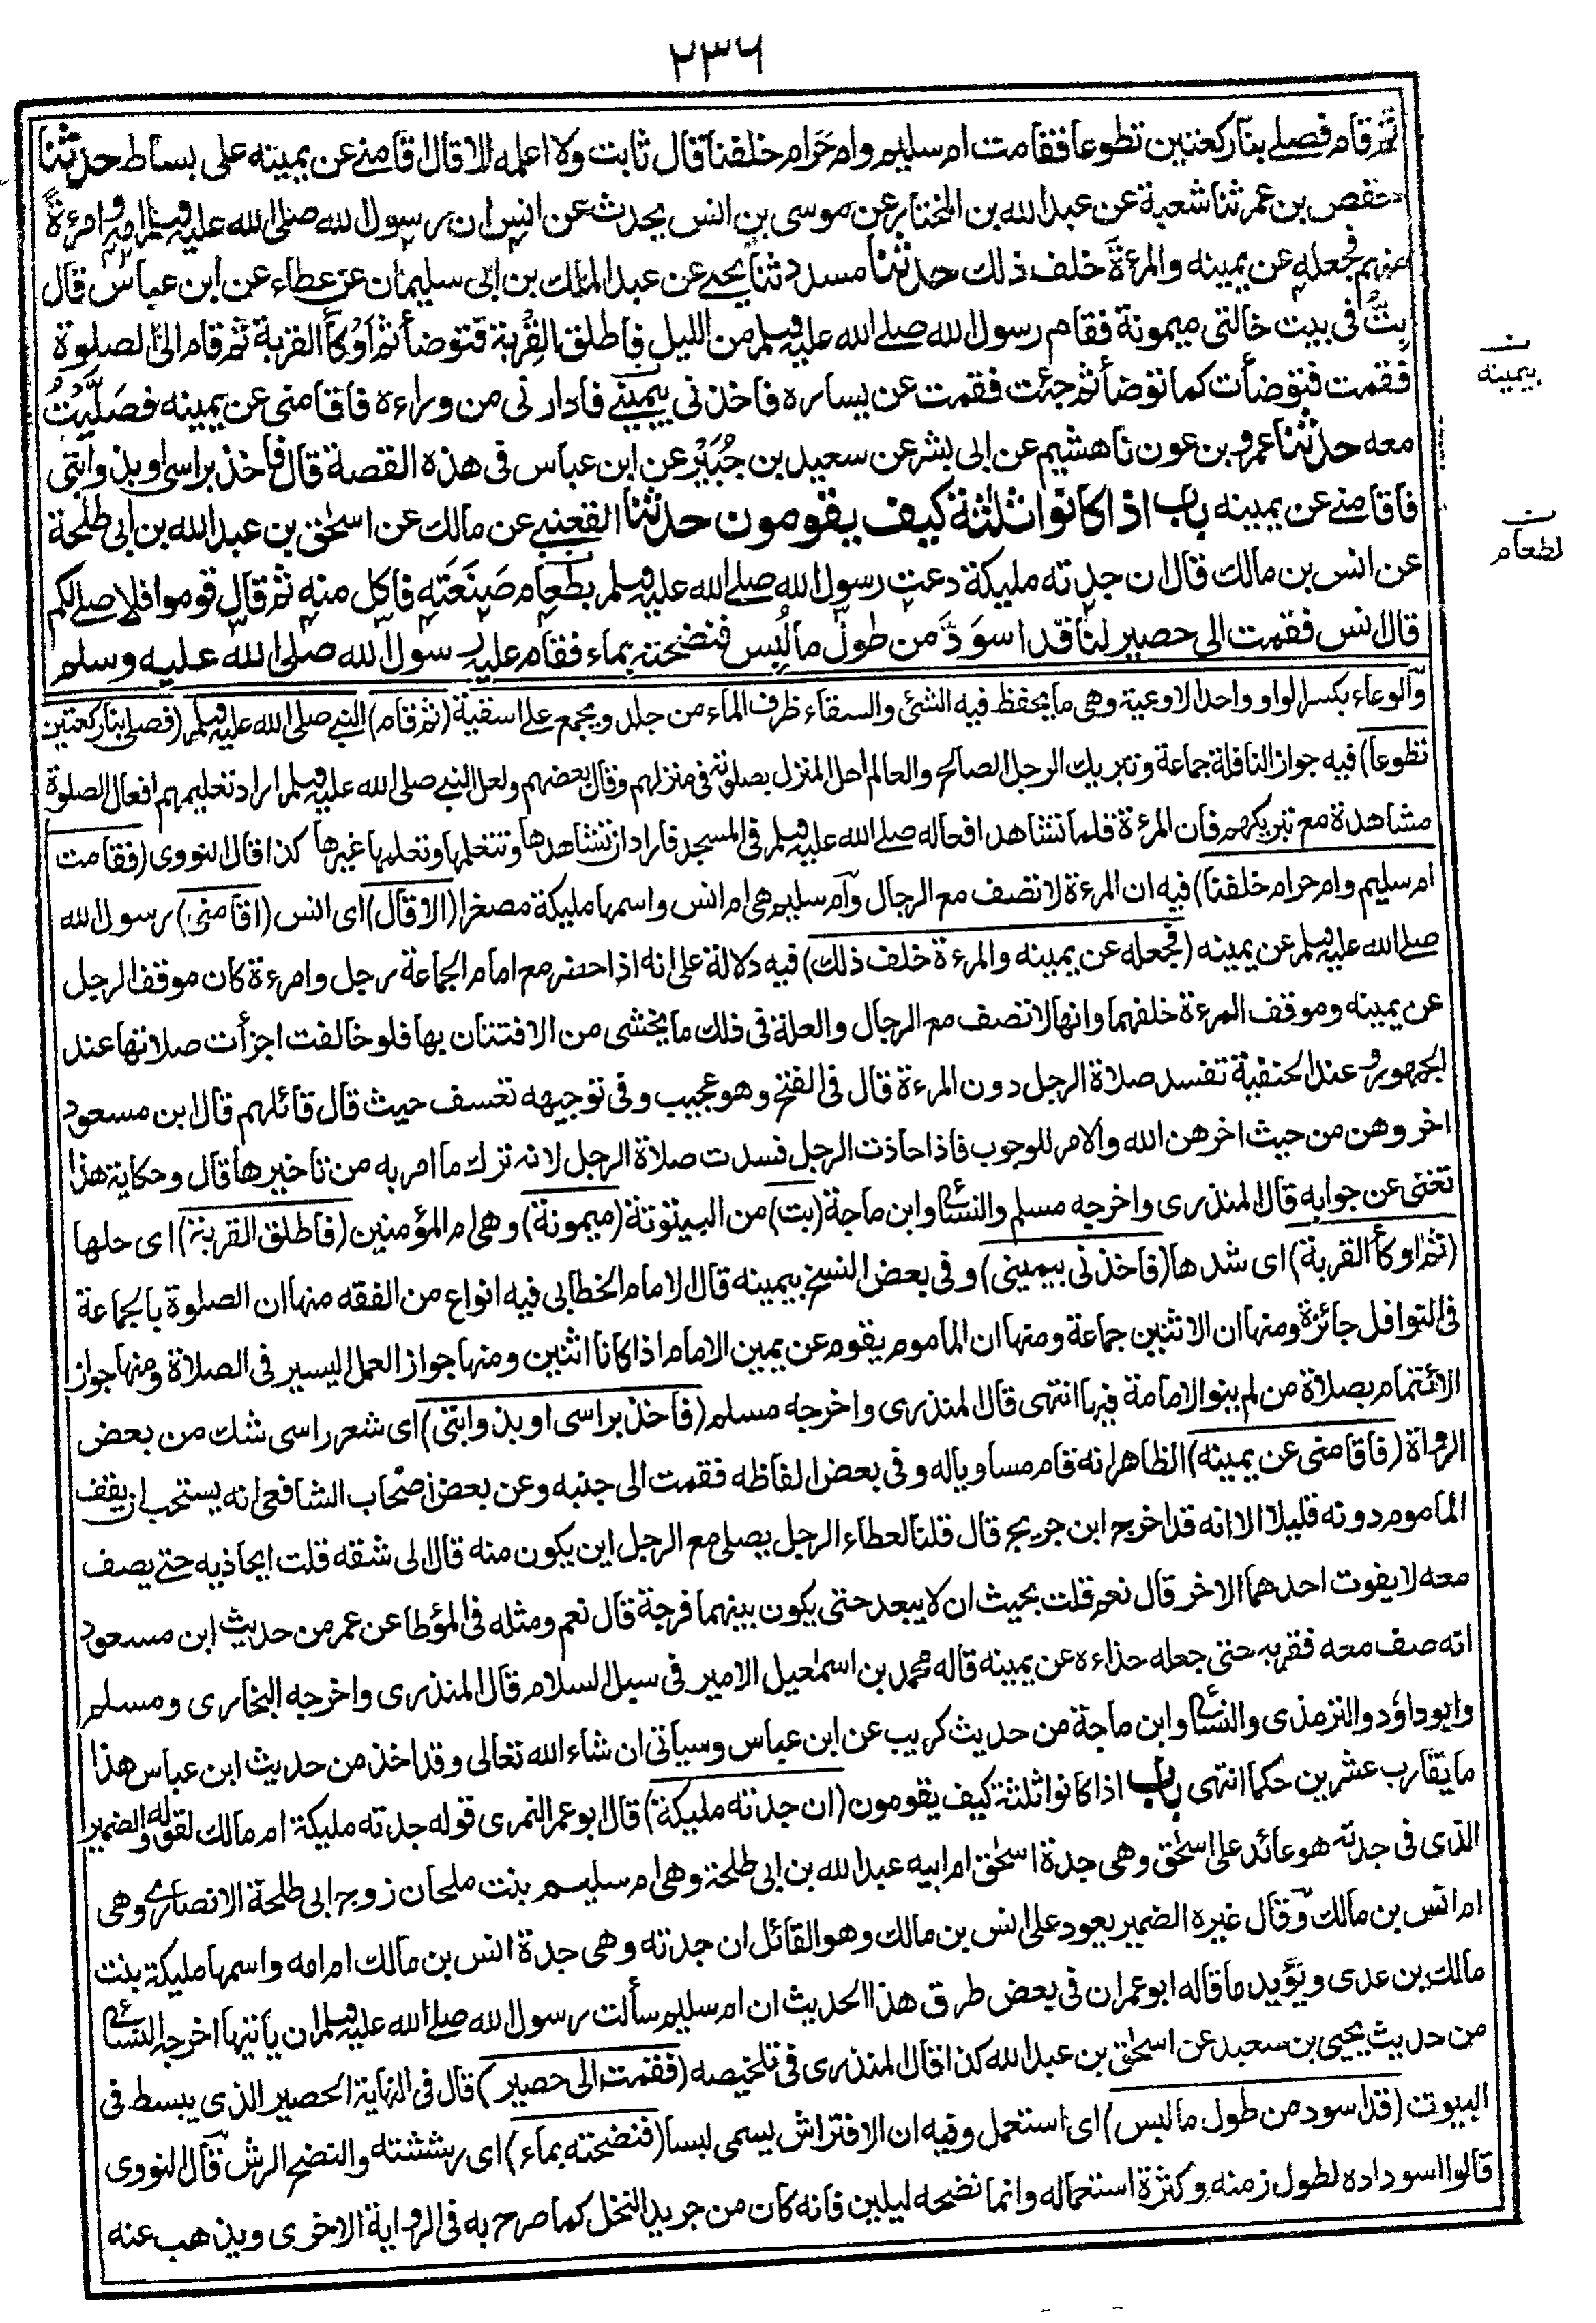 ٢٣٦
ثم قام فصلى بنا ركعتين تطوعا فقامت ام سليم وام حرام خلفنا قال ثابت ولا اعلمه الا قال اقامنى عن يمينه على بساط حدثنا
حفص بن عمر ثنا شعبة عن عبد الله بن المختار عن موسى بن انس يحدث عن انس ان رسول الله صلى الله عليه وسلم امه وامرءة
منهم فجعله عن يمينه والمرءة خلف ذلك حدثنا مسدد ثنا يحيى عن عبد الملك بن ابى سليمان عن عطاء عن ابن عباس قال
بِتُّ فى بيت خالتى ميمونة فقام رسول الله صلى الله عليه وسلم من الليل فاطلق القِربة فتوضأ ثم اوْكأ القربة ثم قام الى الصلوة
فقمت فتوضأت كما توضأ ثم جئت فقمت عن يساره فاخذنى بيمينى فادارنى من وراءه فاقامنى عن يمينه فصَلَّيْتُ
بيمينه
معه حدثنا عمرو بن عون نا هشيم عن ابى بشر عن سعيد بن جُبَيْر عن ابن عباس فى هذه القصة قال فاخذ براسى او بذوابتى
فاقامنى عن يمينه باب اذا كانوا ثلثة كيف يقومون حدثنا القعنبى عن مالك عن اسحٰق بن عبد الله بن ابى طلحة
لطعام
عن انس بن مالك قال ان جدته مليكة دعت رسول الله صلى الله عليه وسلم بطعام صَنَعَتْه فاكل منه ثم قال قوموا فلاصلى لكم
قال انس فقمت الى حصير لنا قد اسوَدَّ من طول ما لُبِس فنضحته بماء فقام عليه رسول الله صلى الله عليه وسلم
والوعاء بكسر الواو واحد الاوعية وهى ما يحفظ فيه الشئ والسقاء ظرف الماء من جلد ويجمع على اسقية (ثم قام) النبى صلى الله عليه وسلم (فصلى بنا ركعتين
تطوعا) فيه جواز النافلة جماعة وتبريك الرجل الصالح والعالم اهل المنزل بصلوته فى منزلهم وقال بعضهم ولعل النبى صلى الله عليه وسلم اراد تعليمهم افعال الصلوة
مشاهدة مع تبريكهم فان المرءة قلما تشاهد افعاله صلى الله عليه وسلم فى المسجد فاراد ان تشاهدها وتتعلمها وتعلمها غيرها كذا قال النووى (فقامت
ام سليم وام حرام خلفنا) فيه ان المرءة لا تصف مع الرجال وام سليم هى ام انس واسمها مليكة مصغرا (الا قال) اى انس (اقامنى) رسول الله
صلى الله عليه وسلم عن يمينه (فجعله عن يمينه والمرءة خلف ذلك) فيه دلالة على انه اذا حضر مع امام الجماعة رجل وامرءة كان موقف الرجل
عن يمينه وموقف المرءة خلفهما وانها لا تصف مع الرجال والعلة فى ذلك ما يخشى من الافتتان بها فلو خالفت اجزأت صلاتها عند
الجمهور وعند الحنفية تفسد صلاة الرجل دون المرءة قال فى الفتح وهو عجيب وفى توجيهه تعسف حيث قال قائلهم قال ابن مسعود
اخروهن من حيث اخرهن الله والامر للوجوب فاذا حاذت الرجل فسدت صلاة الرجل لانه ترك ما امر به من تاخيرها قال وحكاية هذا
تغنى عن جوابه قال المنذرى واخرجه مسلم والنسائى وابن ماجة (بت) من البيتوتة (ميمونة) وهى ام المؤمنين (فاطلق القربة) اى حلها
(ثم اوكأ القربة) اى شدها (فاخذنى بيمينى) وفى بعض النسخ بيمينه قال الامام الخطابى فيه انواع من الفقه منها ان الصلوة بالجماعة
فى النوافل جائزة ومنها ان الاثنين جماعة ومنها ان الماموم يقوم عن يمين الامام اذا كانا اثنين ومنها جواز العمل اليسير فى الصلاة ومنها جواز
الائتمام بصلاة من لم ينو الامامة فيها انتهى قال المنذرى واخرجه مسلم (فاخذ براسى او بذوابتى) اى شعر راسى شك من بعض
الرواة (فاقامنى عن يمينه) الظاهر انه قام مساويا له وفى بعض الفاظه فقمت الى جنبه وعن بعض اصحاب الشافعى انه يستحب ان يقف
الماموم دونه قليلا الا انه قد اخرج ابن جريج قال قلنا لعطاء الرجل يصلى مع الرجل اين يكون منه قال الى شقه قلت ايحاذيه حتى يصف
معه لا يفوت احدهما الاخر قال نعم قلت بحيث ان لا يبعد حتى يكون بينهما فرجة قال نعم ومثله فى المؤطا عن عمر من حديث ابن مسعود
انه صف معه فقربه حتى جعله حذاءه عن يمينه قاله محمد بن اسمٰعيل الامير فى سبل السلام قال المنذرى واخرجه البخارى ومسلم
وابوداؤد والترمذى والنسائى وابن ماجة من حديث كريب عن ابن عباس وسياتى ان شاء الله تعالى وقد اخذ من حديث ابن عباس هذا
ما يقارب عشرين حكما انتهى باب اذا كانوا ثلثة كيف يقومون (ان جدته مليكة) قال ابو عمر النمرى قوله جدته مليكة ام مالك لقوله والضمير
الذى فى جدته هو عائد على اسحٰق وهى جدة اسحٰق ام ابيه عبد الله بن ابى طلحة وهى ام سليم بنت ملحان زوج ابى طلحة الانصارى وهى
ام انس بن مالك وقال غيره الضمير يعود على انس بن مالك وهو القائل ان جدته وهى جدة انس بن مالك ام امه واسمها مليكة بنت
مالك بن عدى ويؤيد ما قاله ابو عمر ان فى بعض طرق هذا الحديث ان ام سليم سألت رسول الله صلى الله عليه وسلم ان ياتيها اخرجه النسائى
من حديث يحيى بن سعيد عن اسحٰق بن عبد الله كذا قال المنذرى فى تلخيصه (فقمت الى حصير) قال فى النهاية الحصير الذى يبسط فى
البيوت (قد اسود من طول ما لبس) اى استعمل وفيه ان الافتراش يسمى لبسا (فنضحته بماء) اى رششته والنضح الرش قال النووى
قالوا اسوداده لطول زمنه وكثرة استعماله وانما نضحه ليلين فانه كان من جريد النخل كما صرح به فى الرواية الاخرى ويذهب عنه